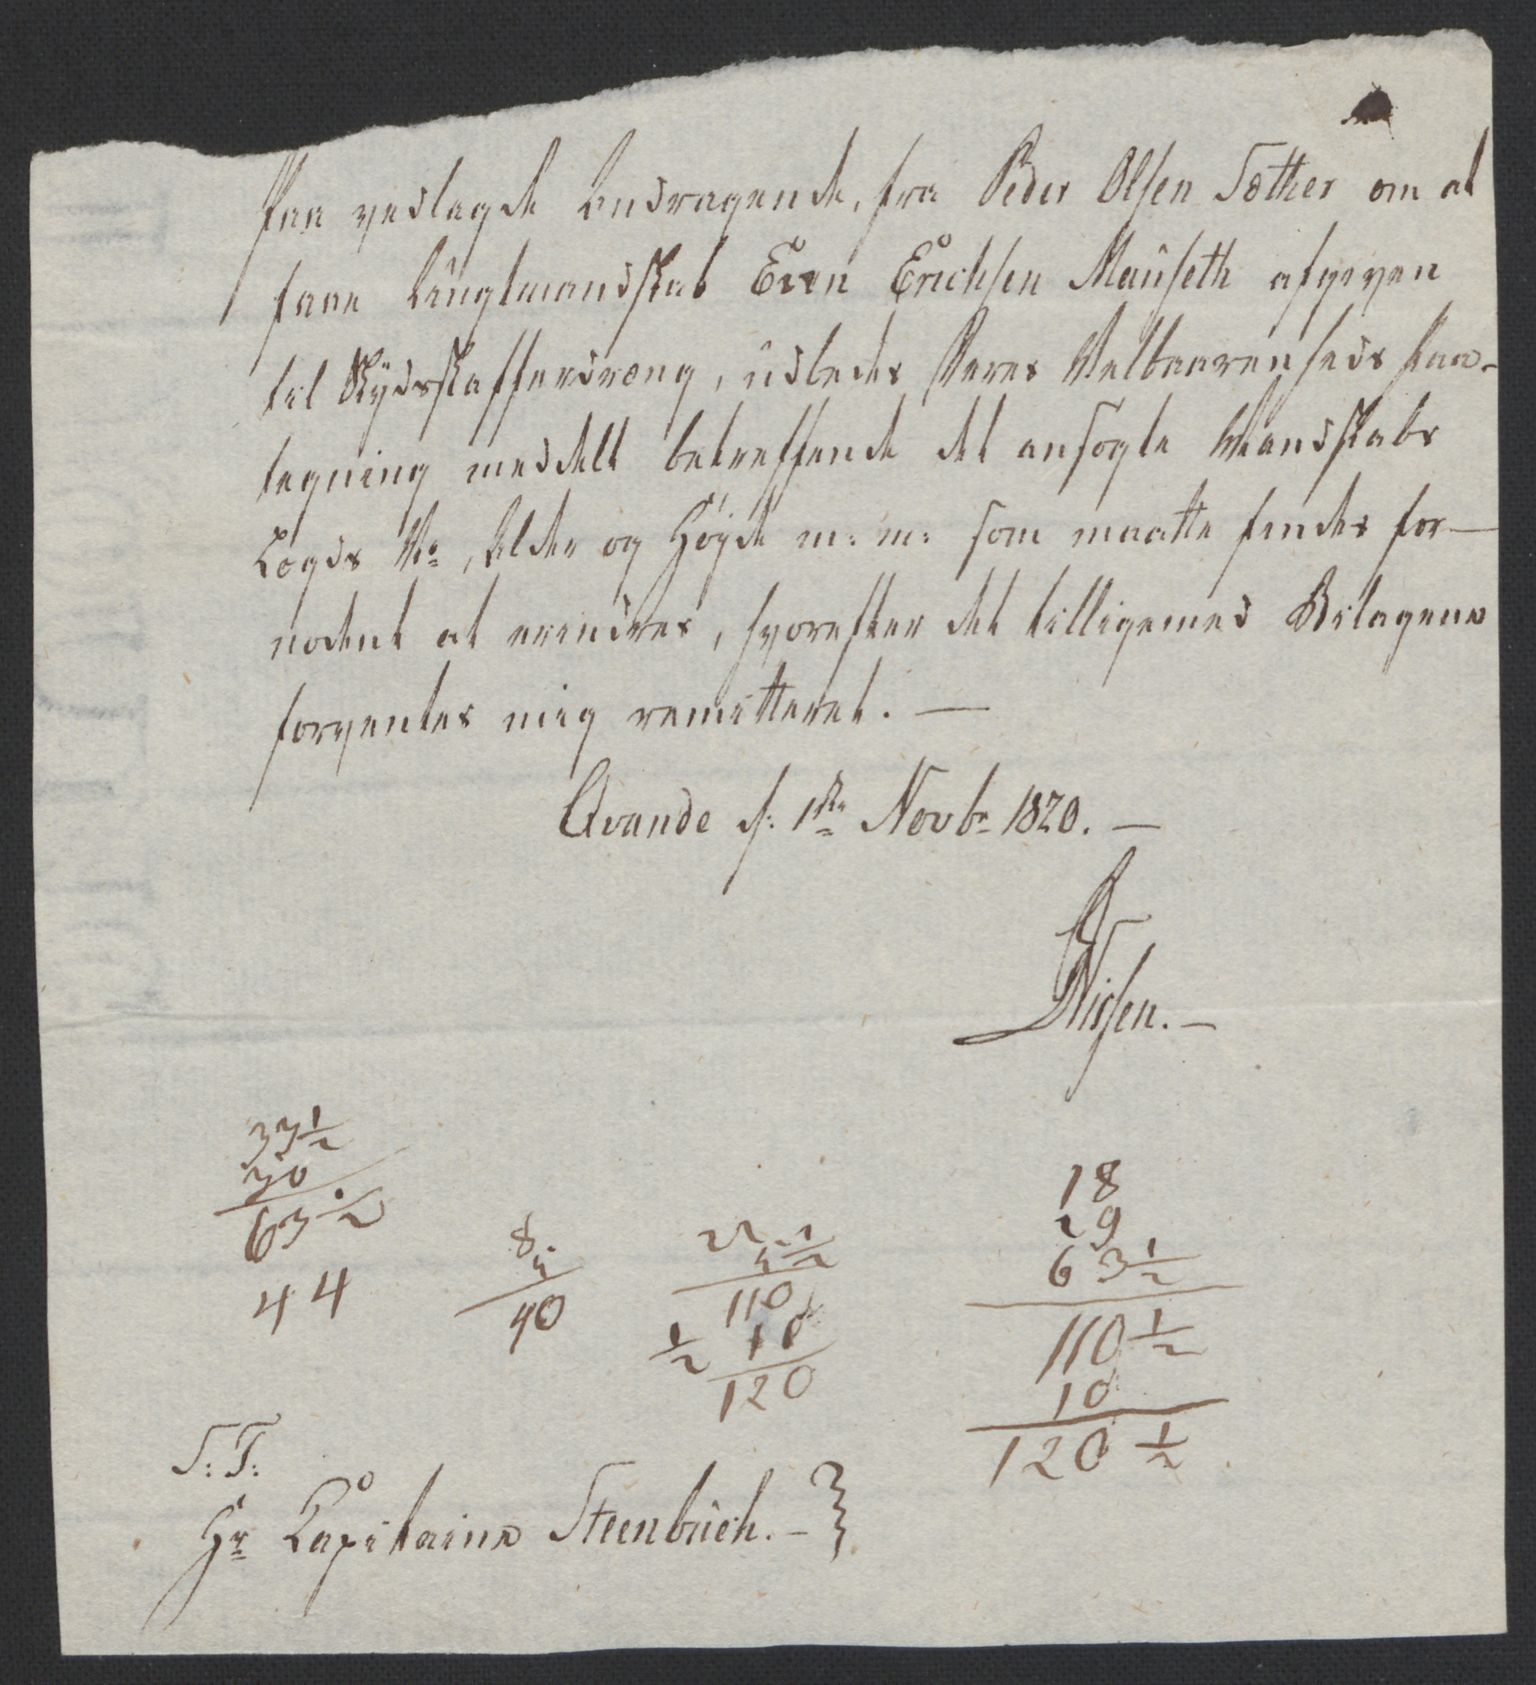 Paa vedlagde Andragende, fra Peder Olsen Sæther om at
faae Ungtmandskab Even Erichsen Mauseth afgiven
til Skydsskafferdræng, udbedes Deres Velbaarenheds Paa-
tegning meddelt betreffende det ansøgte Mandskabs
Lægds No, Alder og Høyde m: m: som maatte findes for-
nødent at erindres, hvorefter det tilligemed Bilagene
forventes mig remitteret. —
Qvande d: 1ste Novbr 1820. —
Nissen. —
33 1/2
30
63 1/2
44
8
5
40
22 1/2
5
110
1/2 10
120
18
29
63 1/2
110 1/2
10
120 1/2
S: T:
Hr Capitaine Steenbuch. —